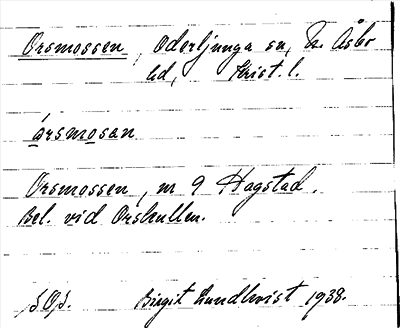 Orsmossen, Oderljunga sn, N. Åsbo
hd, Krist. l.
årsmosan
Orsmossen, m 9 Hagstad.
Bel. vid Orskullen.
Birgit Lundkvist 1938.